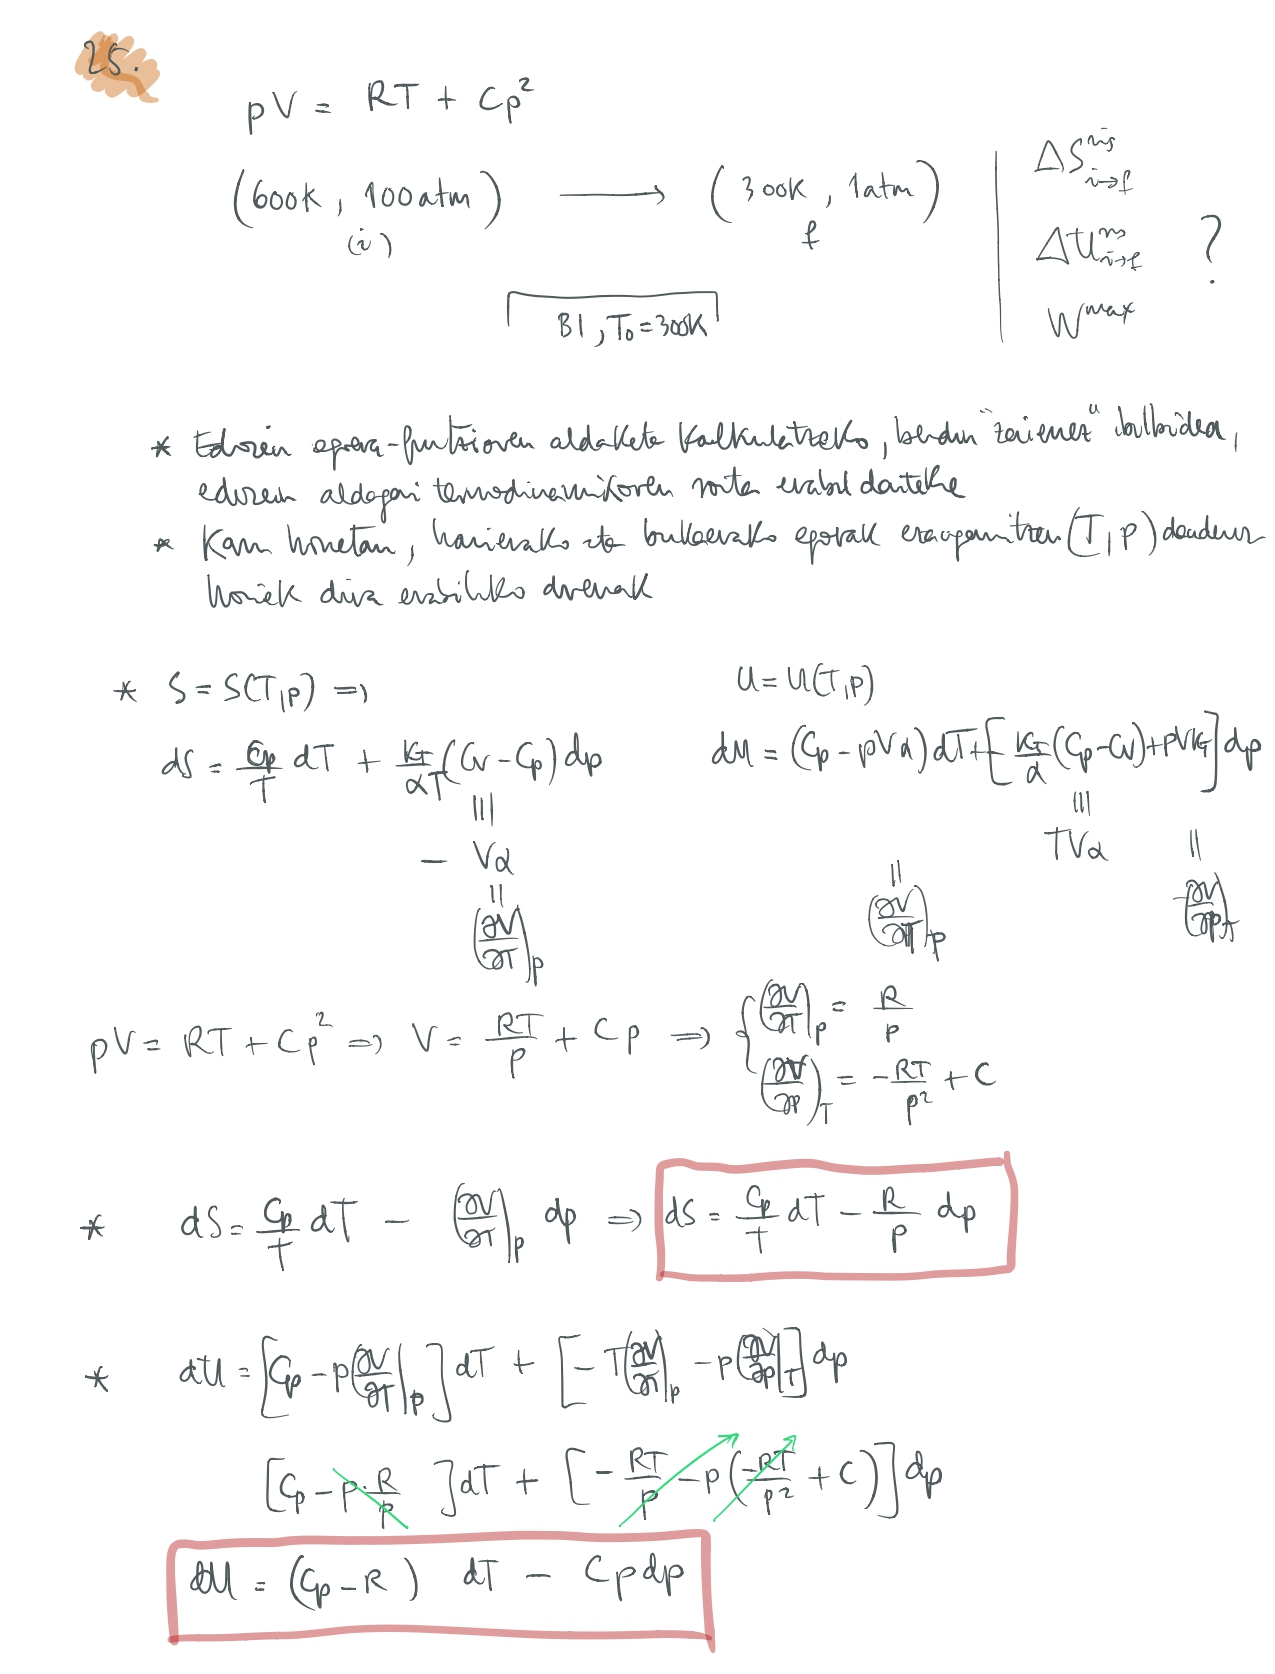 25.
pV = RT + Cp²
(600K, 100atm) ⟶ (300K, 1atm)
(i) f
ΔS i→f
ΔU i→f ?
W^max
BI, T₀ = 300K
* Edozein egoera-funtzioren aldaketa kalkulatzeko, berdin "zaienez" ibilbidea,
edozein aldagai termodinamikoren bidez erabil daiteke
* Kasu honetan, hasierako eta bukaerako egoerak ezaugarritzen (T, p) dauden
horiek dira erabiliko direnak
* S = S(T, p) ⇒ U = U(T, p)
dS = Cp/T dT + κT/αT (Cv - Cp) dp dU = (Cp - pVα) dT + [κT/α (Cp - Cv) + pVκT] dp
≡ ≡
- Vα TVα =
= =
(∂V/∂T)p (∂V/∂T)p -(∂V/∂p)T
pV = RT + Cp² ⇒ V = RT/p + Cp ⇒ { (∂V/∂T)p = R/p
(∂V/∂p)T = -RT/p² + C
* dS = Cp/T dT - (∂V/∂T)p dp ⇒ dS = Cp/T dT - R/p dp
* dU = [Cp - p(∂V/∂T)p] dT + [- T(∂V/∂T)p - p(∂V/∂p)T] dp
[Cp - p·R/p] dT + [- RT/p - p(-RT/p² + C)] dp
dU = (Cp - R) dT - Cpdp